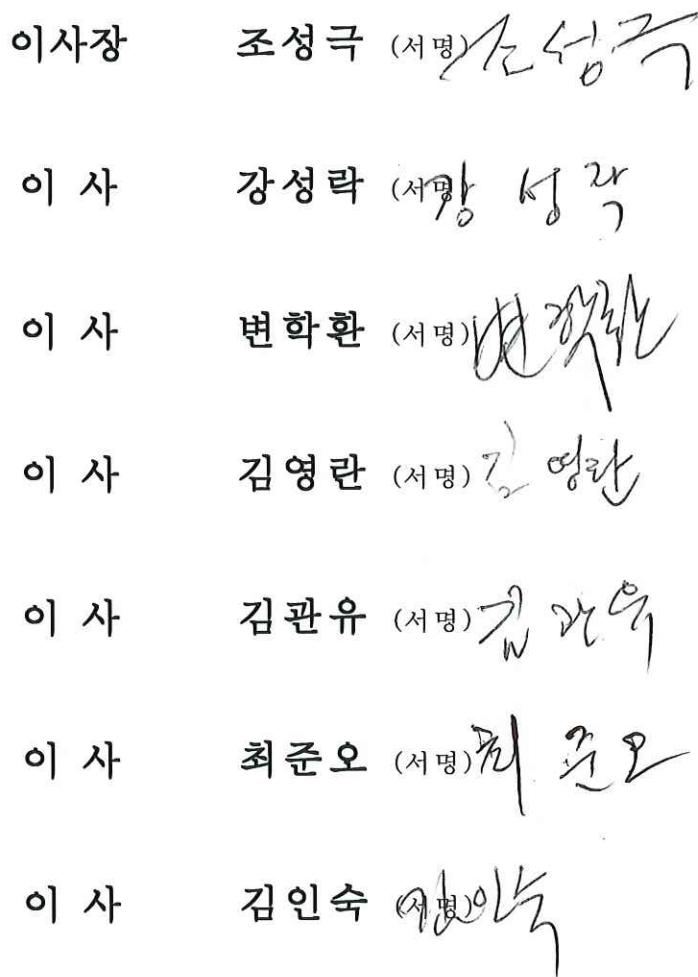 이사장 조성극 (서명) 조성극
이 사 강성락 (서명) 강성락
이 사 변학환 (서명) 변학환
이 사 김영란 (서명) 김영란
이 사 김관유 (서명) 김관유
이 사 최준오 (서명) 최준오
이 사 김인숙 (서명) 김인숙